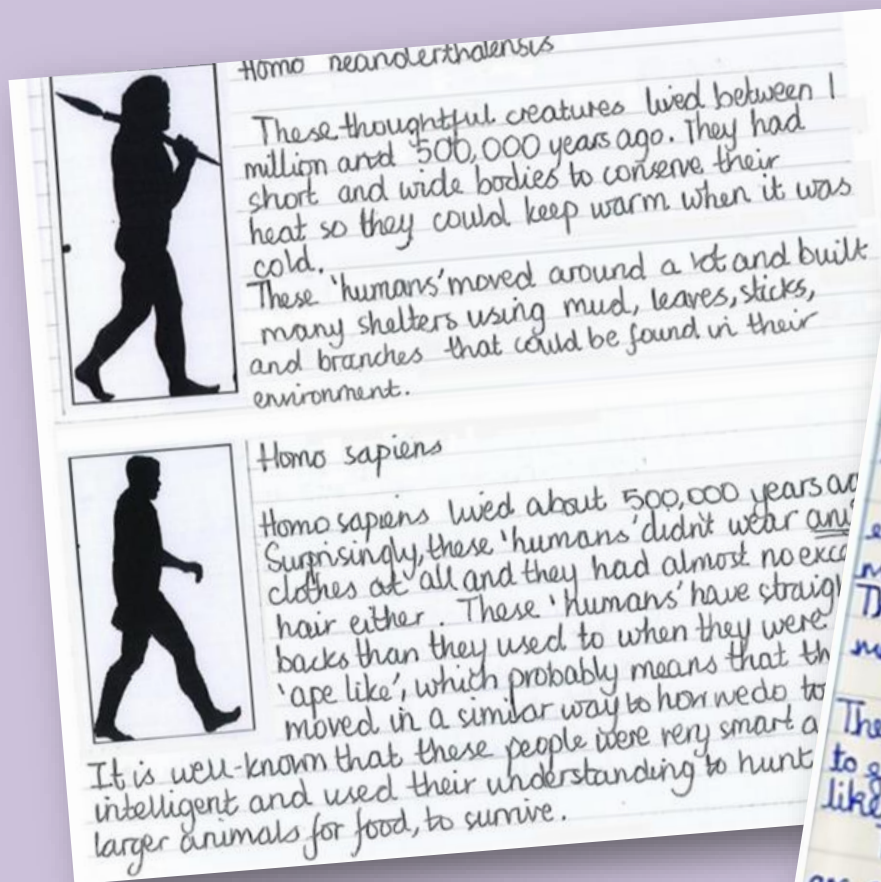 Homo neanderthalensis
These thoughtful creatures lived between 1
million and 500,000 years ago. They had
short and wide bodies to conserve their
heat so they could keep warm when it was
cold.
These 'humans' moved around a lot and built
many shelters using mud, leaves, sticks,
and branches that could be found in their
environment.
Homo sapiens
Homo sapiens lived about 500,000 years
Surprisingly, these 'humans' didn't wear
clothes at all and they had almost no
hair either. These 'humans' have
backs than they used to when they were
'ape like', which probably means that
moved in a similar way to how we do
It is well-known that these people were very smart
intelligent and used their understanding to hunt
larger animals for food, to survive.
The
to